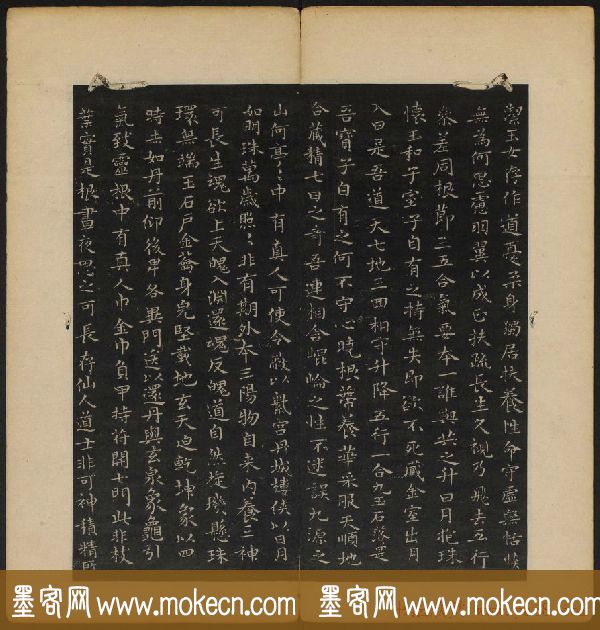 潔玉女存作道憂柔身獨居扶養性命守虛無恬惔
無為何思慮羽翼以成正扶疏長生久視乃飛去五行
參差同根節三五合氣要本一誰與共之升日月抱珠
懷玉和子室子自有之持無失即欲不死藏金室出月
入日是吾道天七地三回相守升降五行一合九玉石落是
吾寶子自有之何不守心曉根蒂養華采服天順地
合藏精七日之奇吾連相合崐崘之性不迷誤九源之
山何亭〻中有真人可使令蔽以紫宮丹城樓俠以日月
如明珠萬歲照〻非有期外本三陽物自来內養三神
可長生魂欲上天魄入淵還魂反魄道自然旋璣懸珠
環無端玉石戶金籥身完堅載地玄天迫乾坤象以四
時赤如丹前仰後卑各異門送以還丹與玄泉象龜引
氣致靈根中有真人巾金巾負甲持符開七門此非枝
葉實是根晝夜思之可長存仙人道士非可神積精所
墨客网 www.mokecn.com 墨客网 www.mokecn.com